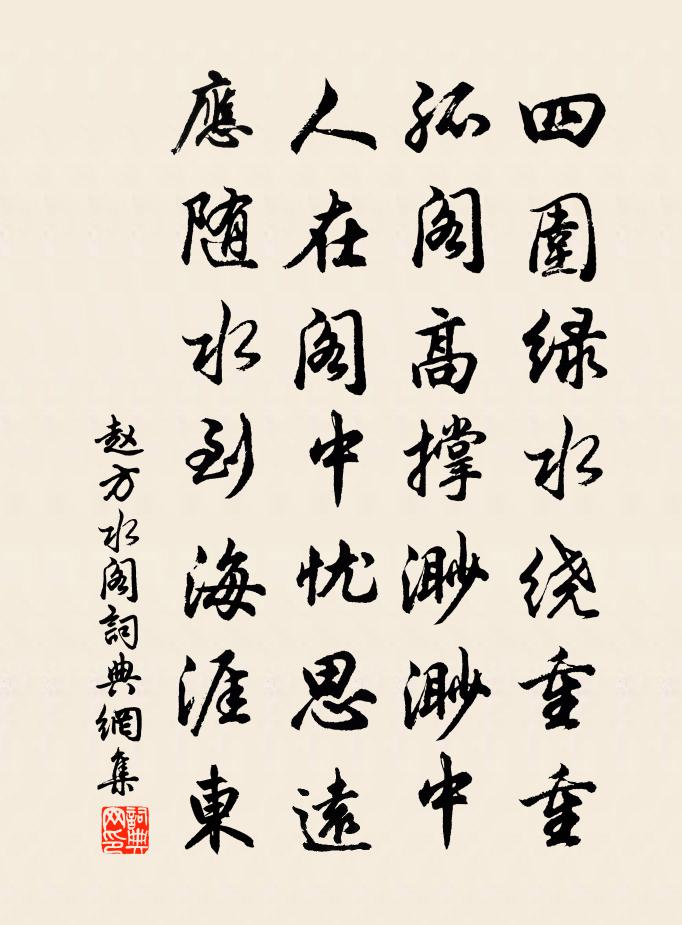 四圍绿水绕重重
孤阁高撑渺渺中
人在阁中忧思遠
應随水到海涯東
赵方水阁詞典網集
詞典网印